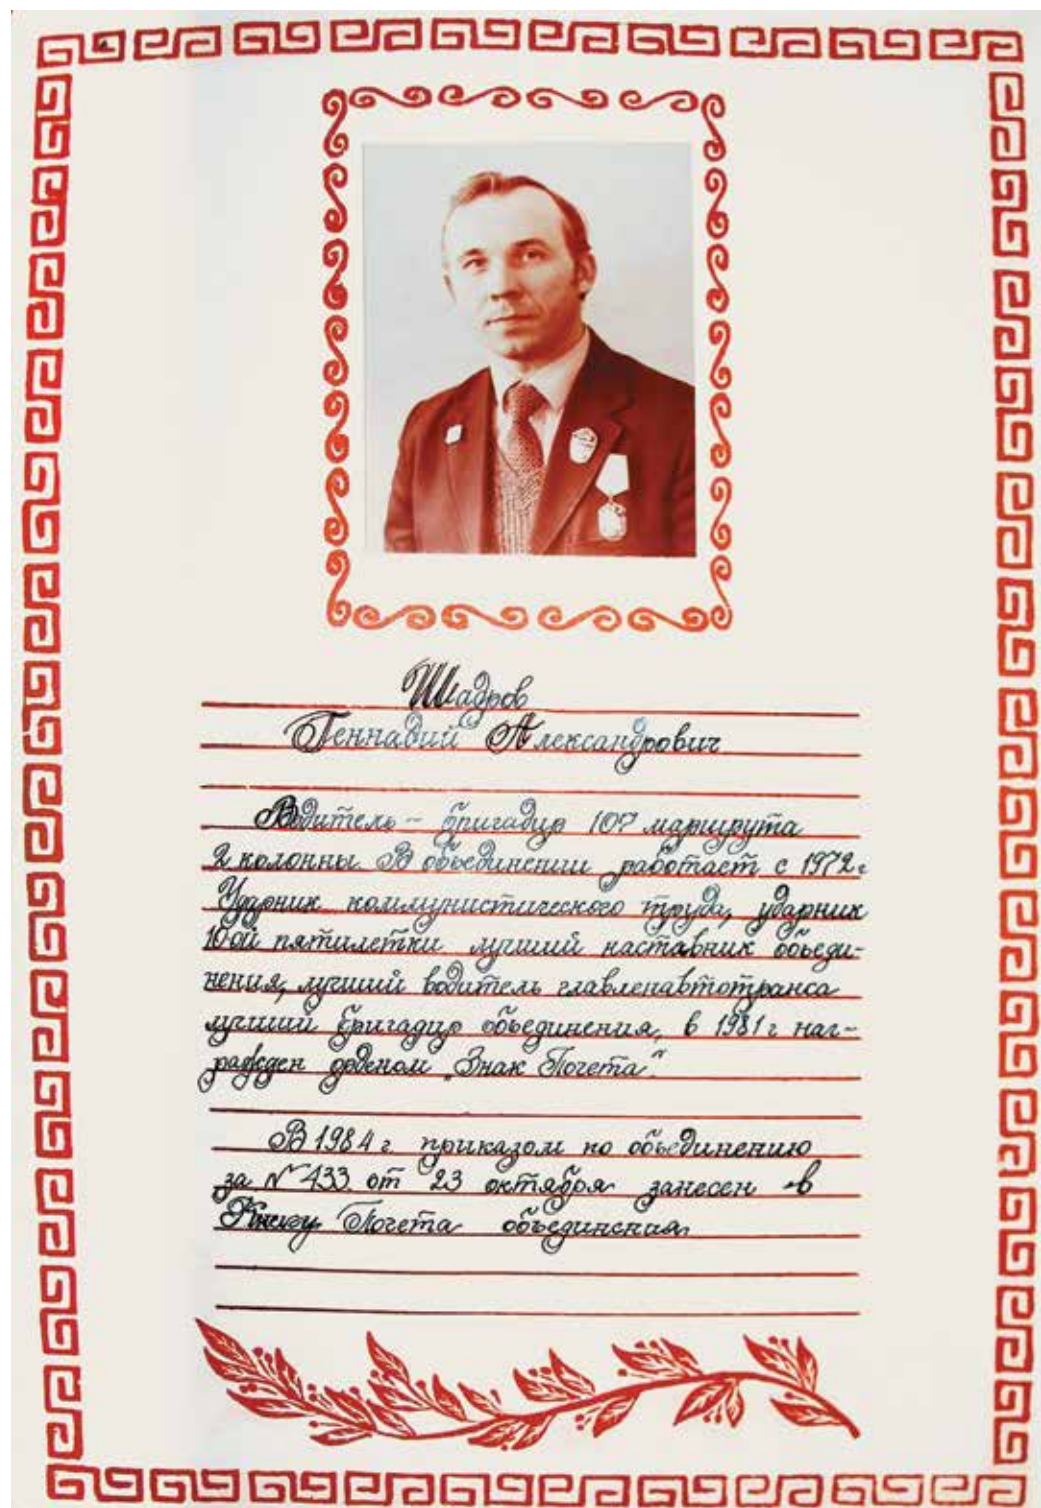 Шадров
Геннадий Александрович
Водитель - бригадир 107 маршрута
2 колонны. В объединении работает с 1972 г
Ударник коммунистического труда, ударник
10ой пятилетки лучший наставник объеди-
нения, лучший водитель главленавтотранса
лучший бригадир объединения, в 1981 г наг-
ражден орденом „Знак Почета".
В 1984 г. приказом по объединению
за № 433 от 23 октября занесен в
Книгу Почета объединения